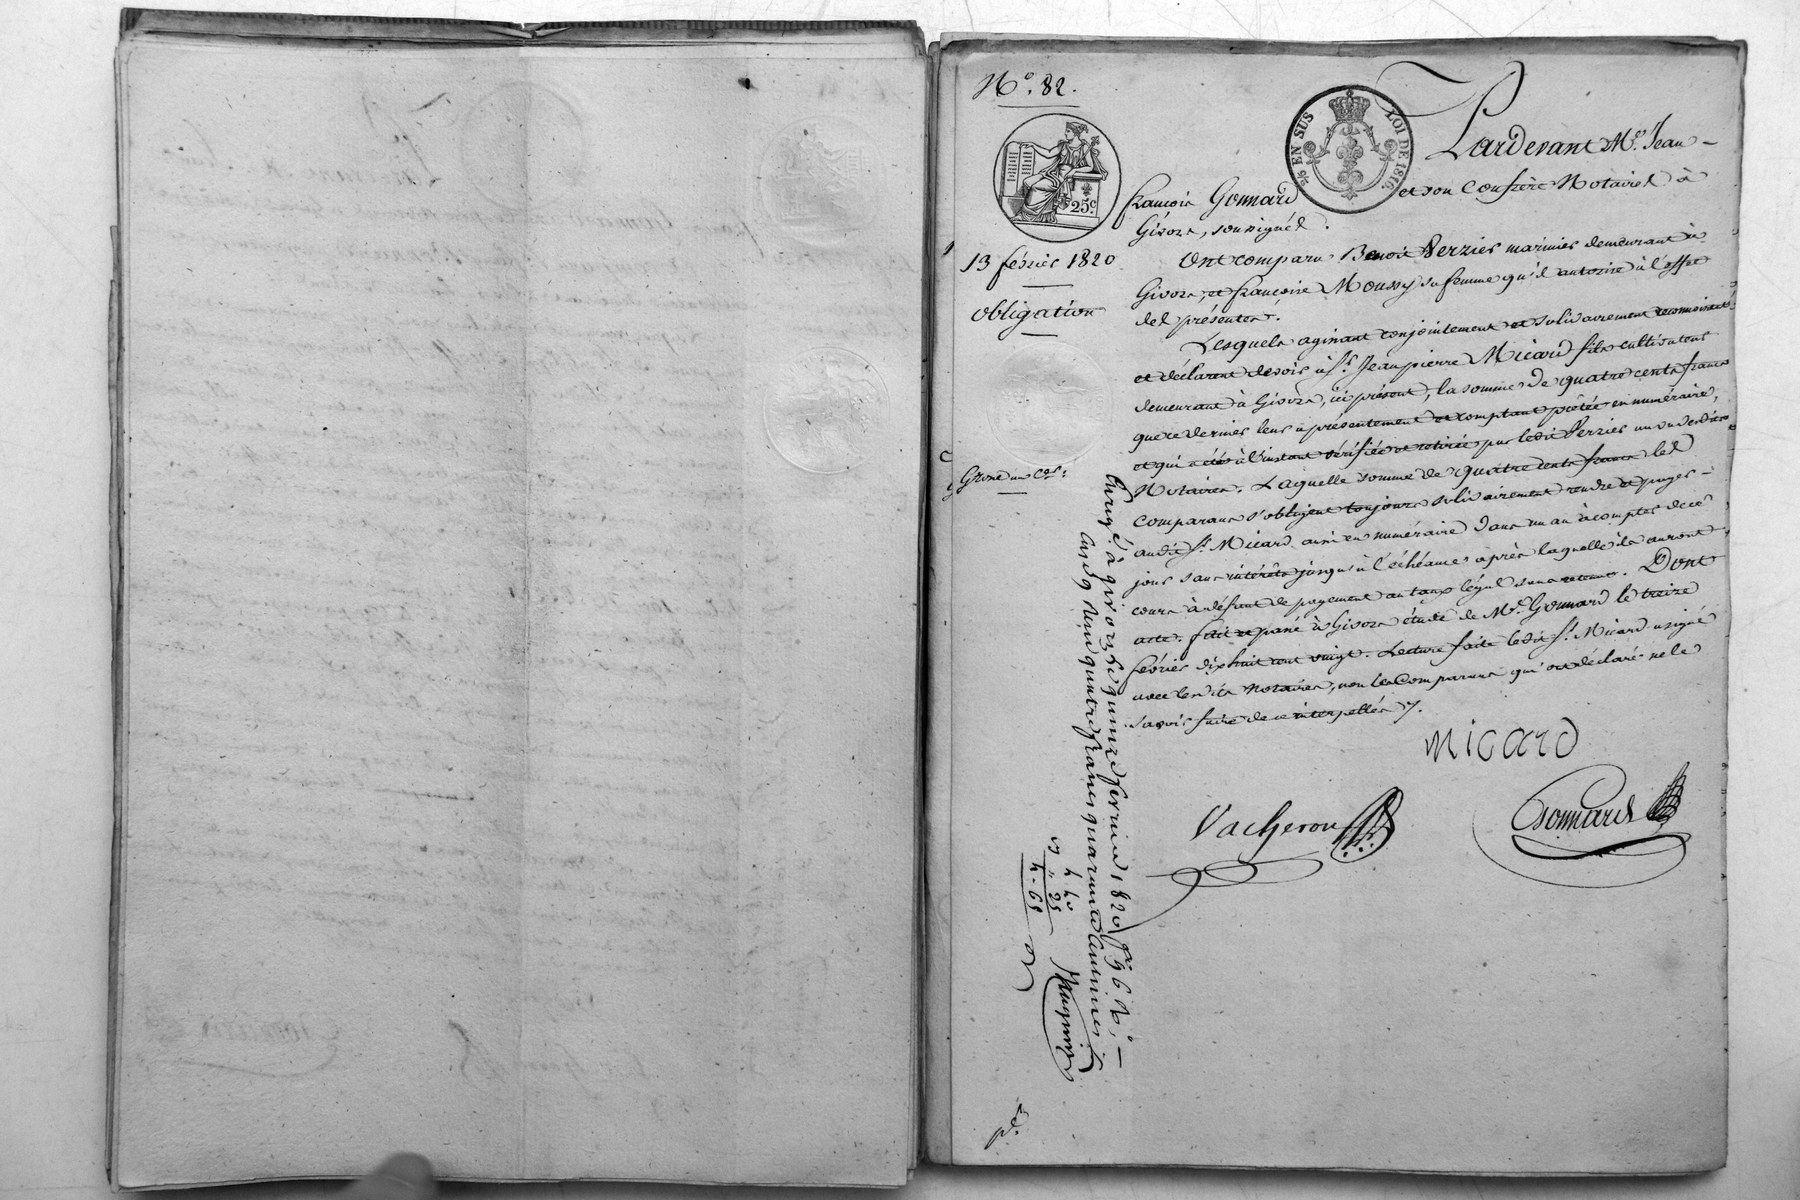 N.º 82.
25.c
¾ EN SUS
LOI DE 1816.
13 février 1820
obligation
Grosse un Cот.
Pardevant M.e Jean-
françois Gonnard et son Confrère Notaires à
Givors, soussignés.
Ont comparu Benoit Verzier marinier demeurant à
Givors, et françoise Moussy sa femme qu'il autorise à l'effet
des présentes.
Lesquels agissant conjointement et solidairement reconnoissent
et déclarent devoir à Sr. Jean pierre Micard fils cultivateur
demeurant à Givors, ici présent, la somme de quatre cents francs
que ce dernier leur a présentement et comptant prêtée en numéraire,
et qui a été à l'instant vérifiée et retirée par ledit Verzier au vu desdits
Notaires. Laquelle somme de quatre cents francs les
comparans s'obligent toujours solidairement rendre et payer
audit Sr. Micard aussi en numéraire dans un an à compter de ce
jour sans intérêts jusqu'à l'échéance après laquelle ils auront
cours à défaut de payement au taux légal sans retenue. Dont
acte. fait et passé à Givors étude de M.e Gonnard le treize
février dix huit cent vingt. Lecture faite ledit Sr. Micard a signé
avec lesdits Notaires, non les Comparans qui ont déclaré ne le
savoir faire de ce interpellés.
micard
Vacheron
Gonnard
Enreg. à givors le quinze fevrier 1820 f.o 96
quatre francs quarante centimes
4 40
" 25
4. 65